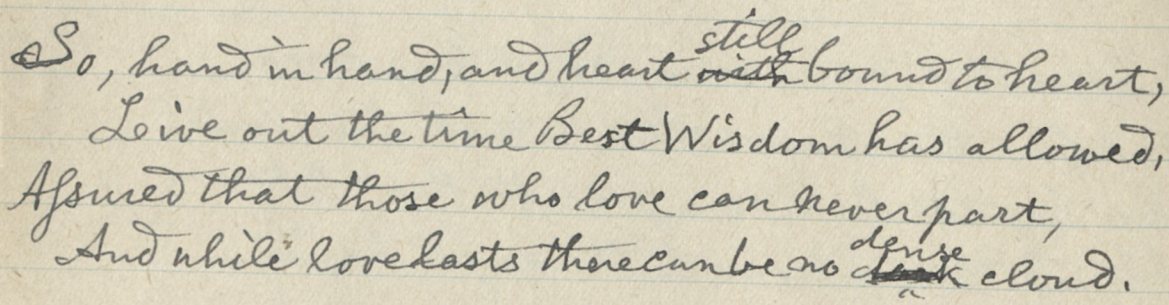 So, hand in hand, and heart still bound to heart,
Live out the time Best Wisdom has allowed,
Assured that those who love can never part,
And while love lasts there can be no dense cloud.